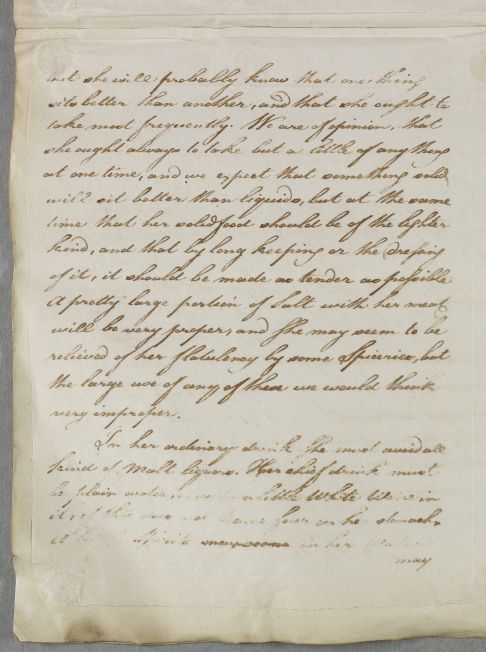 but she will probably know that one thing
sits better than another, and that she ought to
take most frequently. We are of opinion, that
she ought always to take but a little of any thing
at one time, and we expect that something solid
will sit better than liquids, but at the same
time that her solid food should be of the lighter
kind, and that by long keeping or the dressing
of it, it should be made as tender as possible.
A pretty large portion of Salt with her meat
will be very proper, and She may seem to be
relieved of her flatulency by some Spiceries, but
the large use of any of these we would think
very improper.
In her ordinary drink She must avoid all
kind of Malt liquors. Her chief drink must
be plain water a little White Wine in
it, if this does not sour on her stomach.
Spirits in her Water
may